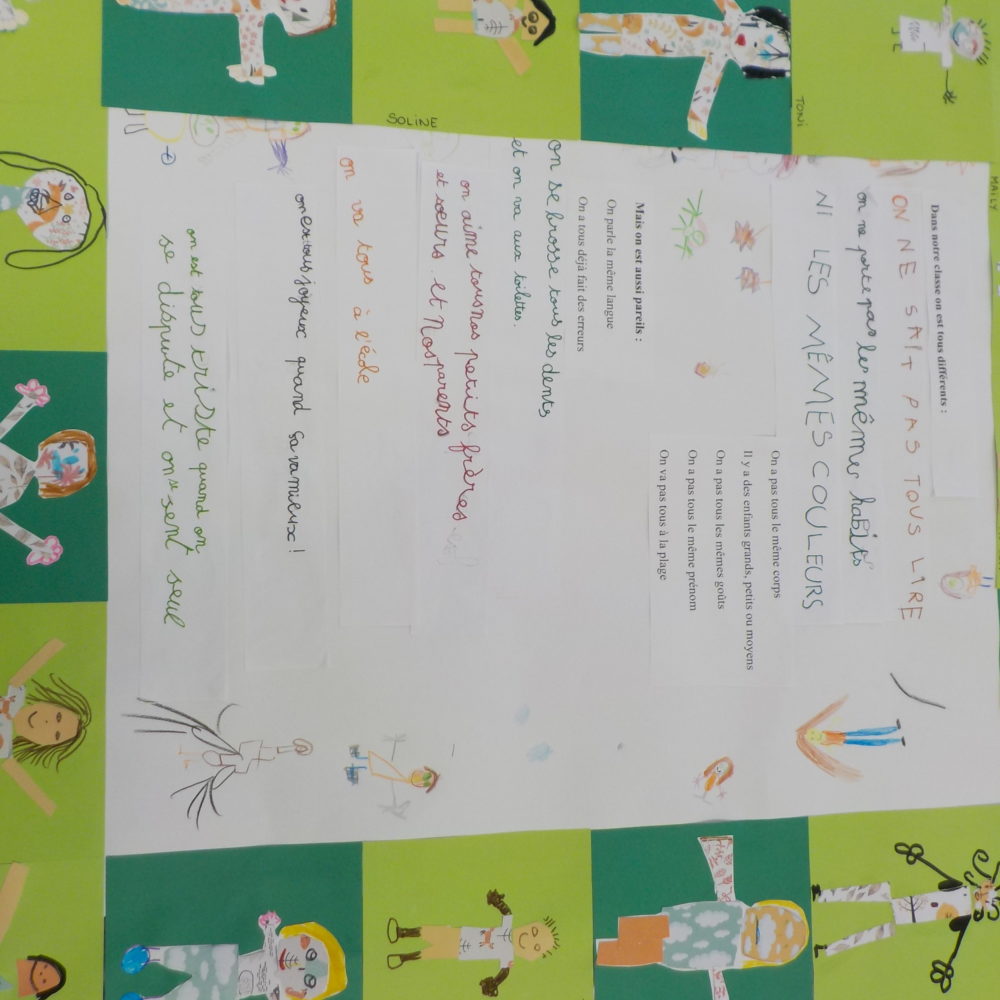 SOLINE
TONI
MAILY
Dans notre classe on est tous différents :
ON NE SAIT PAS TOUS LIRE
on ne porte pas les mêmes habits
NI LES MÊMES COULEURS
On a pas tous le même corps
Il y a des enfants grands, petits ou moyens
On a pas tous les mêmes goûts
On a pas tous le même prénom
On va pas tous à la plage
Mais on est aussi pareils :
On parle la même langue
On a tous déjà fait des erreurs
on se brosse tous les dents
et on va aux toilettes.
on aime tous nos petits frères
et sœurs. et Nos parents
on va tous à l'école
on est tous joyeux quand sa va mieux !
on est tous triste quand on
se dispute et on se sent seul